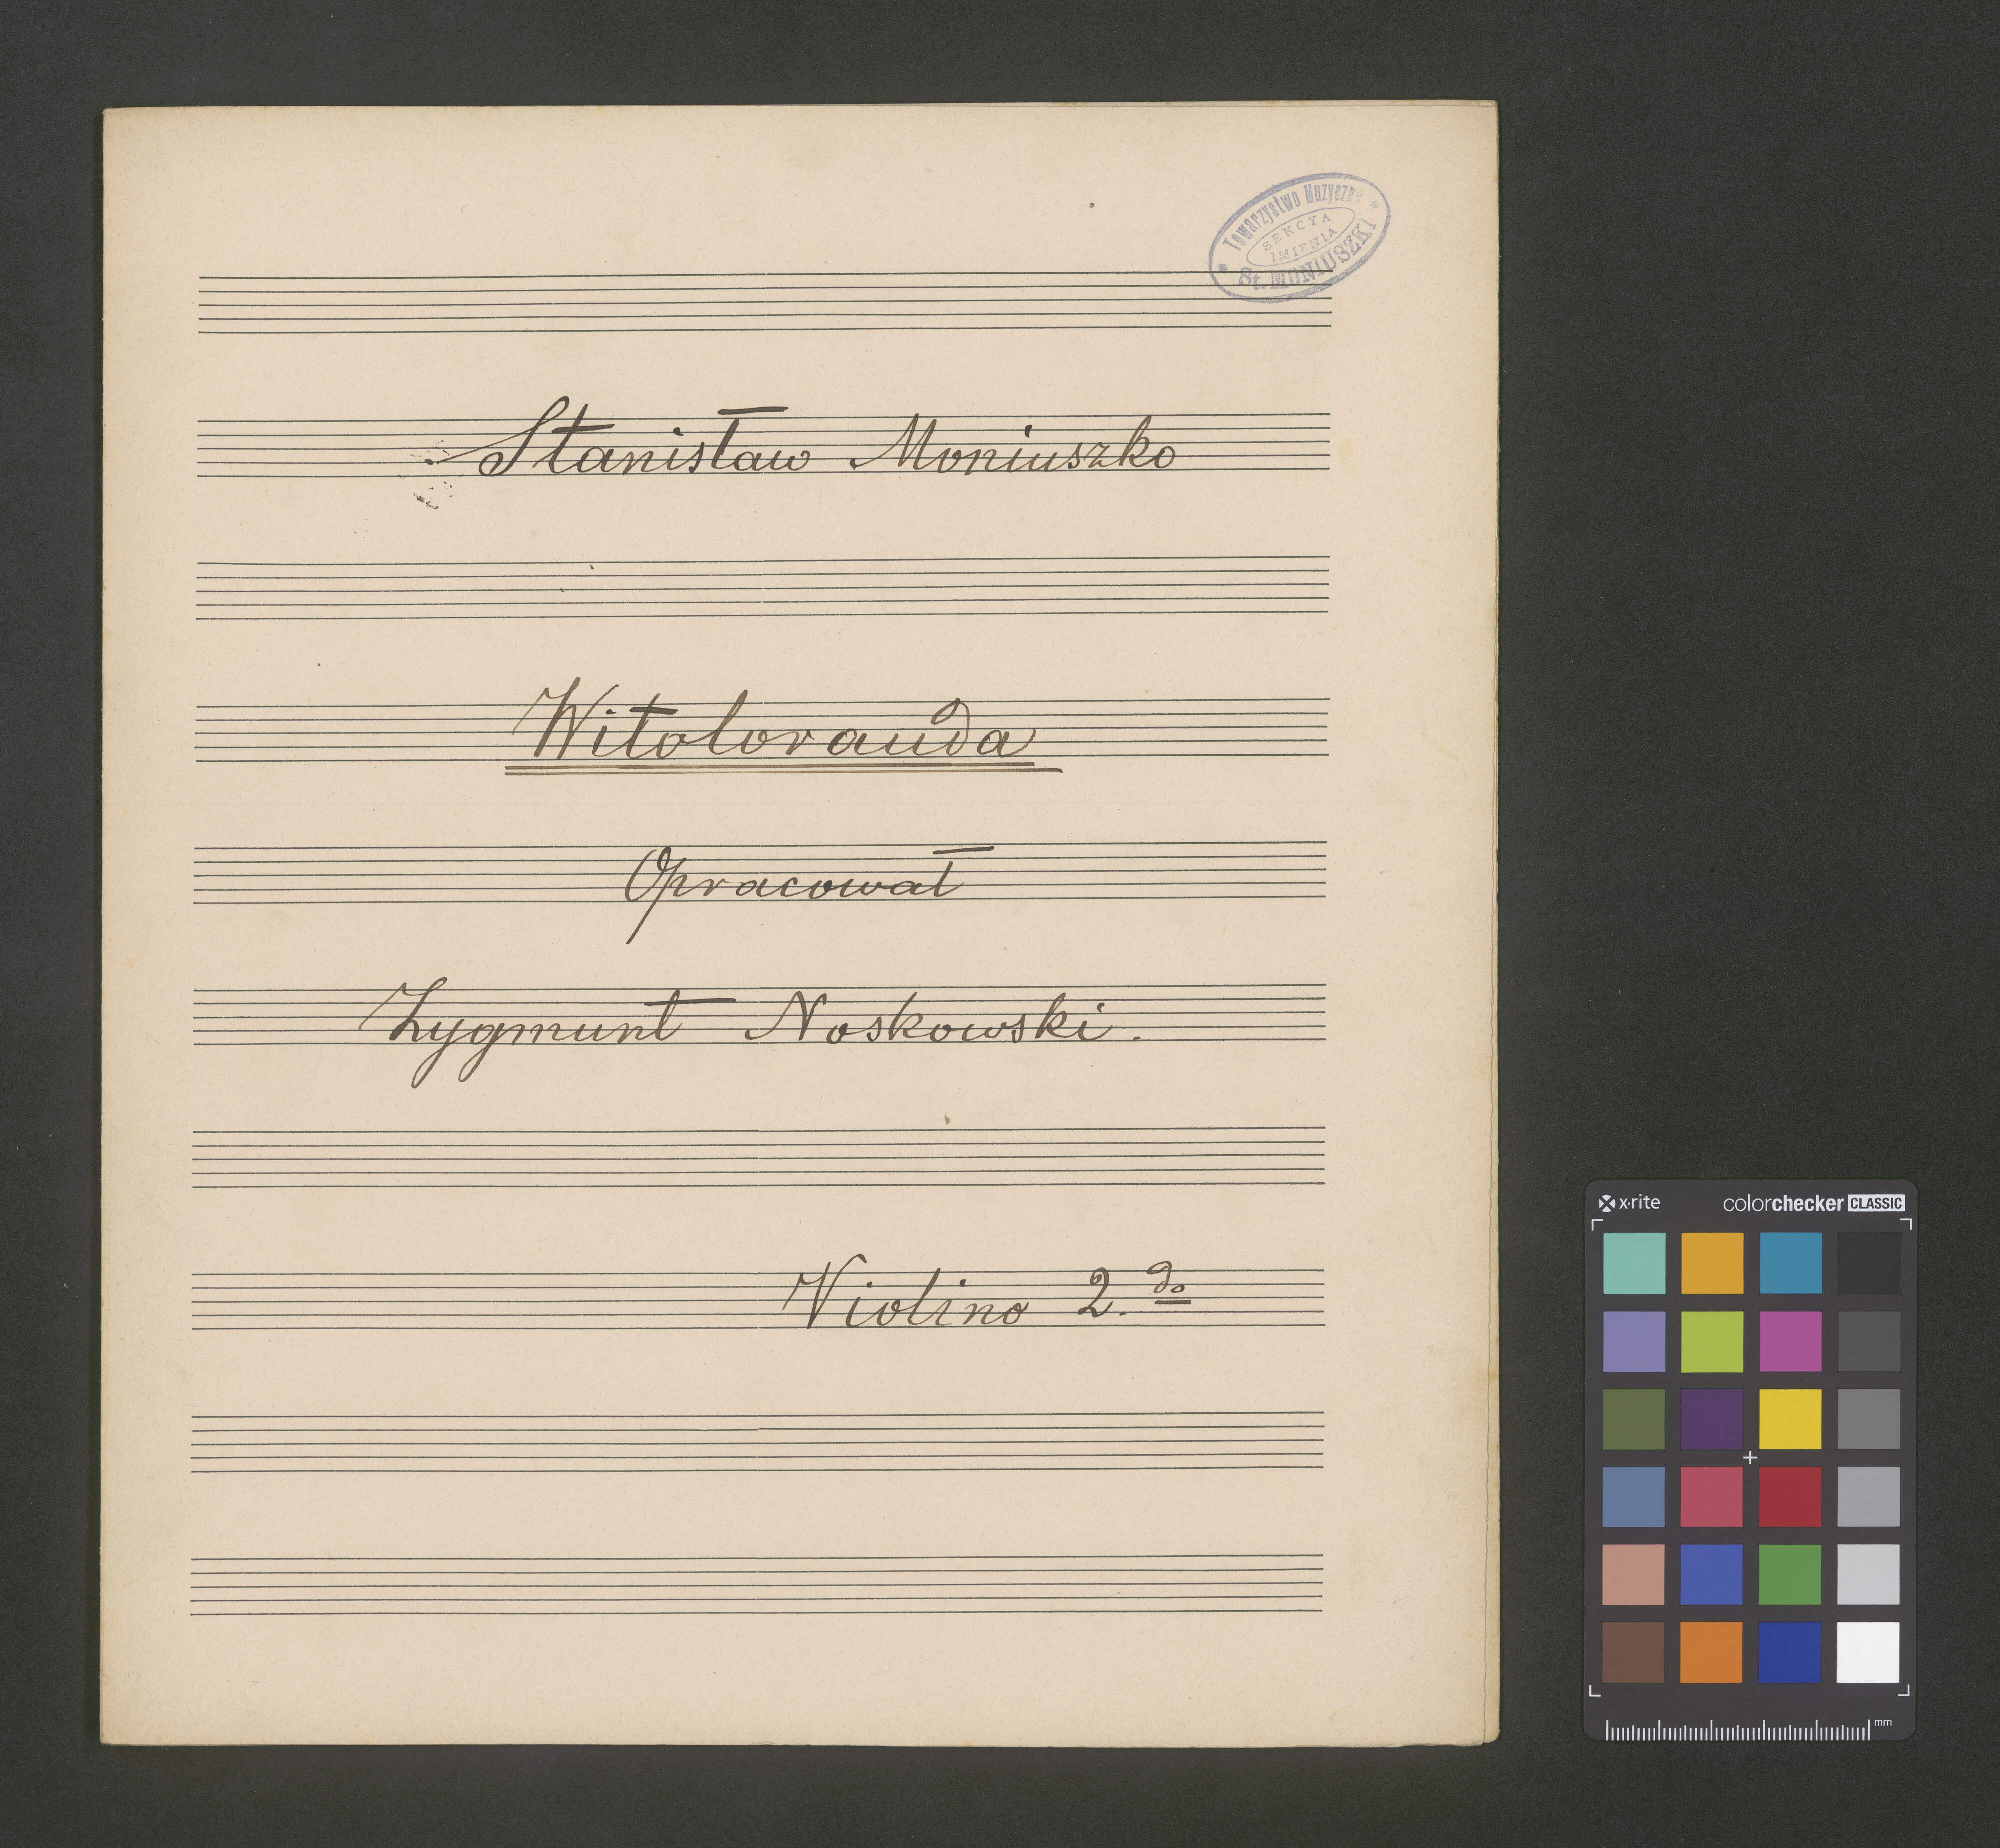 Towarzystwo Muzyczne
SEKCYA
IMIENIA
St. MONIUSZKI
Stanisław Moniuszko
Witolorauda
Opracował
Zygmunt Noskowski.
Violino 2.do
x-rite colorchecker CLASSIC
mm